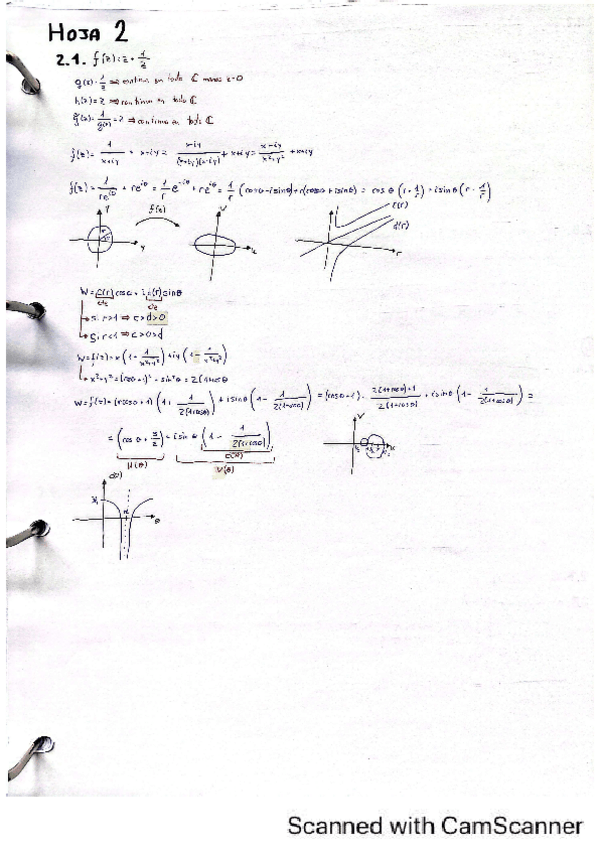 HOJA 2
2.1. f(z)=z+1/z
g(z)=1/z ⇒ continua en todo ℂ menos z=0
h(z)=z ⇒ continua en todo ℂ
⇒ continua en todo ℂ
f(z)= 1/(x+iy) + x+iy = (x-iy)/((x+iy)(x-iy)) + x+iy = (x-iy)/(x²+y²) + x+iy
f(z)= 1/(re^{iθ}) + re^{iθ} = 1/r e^{-iθ} + re^{iθ} = 1/r (cosθ-isinθ)+r(cosθ+isinθ) = cosθ(r+1/r)+isinθ(r-1/r)
f(z)
c(r)
d(r)
r
W= c(r)cosθ + id(r)sinθ
Si r>1 ⇒ c>d>0
Si r<1 ⇒ c>0>d
W=f(z)=x(1+1/(x²+y²))+iy(1-1/(x²+y²))
x²+y²=(cosθ+1)²+sin²θ=2(1+cosθ
W=f(z)=(cosθ+1)(1+1/(2(1+cosθ)))+isinθ(1-1/(2(1+cosθ)))=(cosθ+1)·(2(1+cosθ)+1)/(2(1+cosθ))+isinθ(1-1/(2(1+cosθ)))=
=(cosθ+3/2)+isinθ(1-1/(2(1+cosθ)))
u(θ)
c(θ)
v(θ)
c(θ)
θ
Scanned with CamScanner